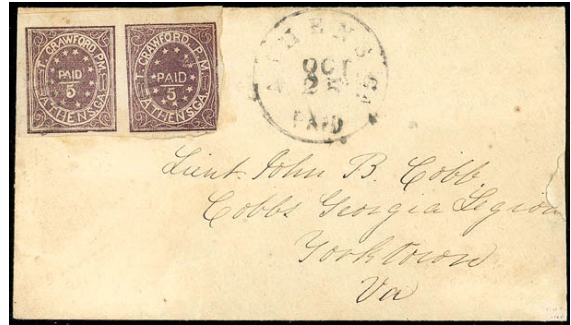 T. CRAWFORD, P.M.
PAID
5
ATHENS, GA.
T. CRAWFORD, P.M.
PAID
5
ATHENS, GA.
ATHENS GA
OCT
25
PAID
Lieut. John B. Cobb
Cobbs Georgia Legion
Yorktown
Va